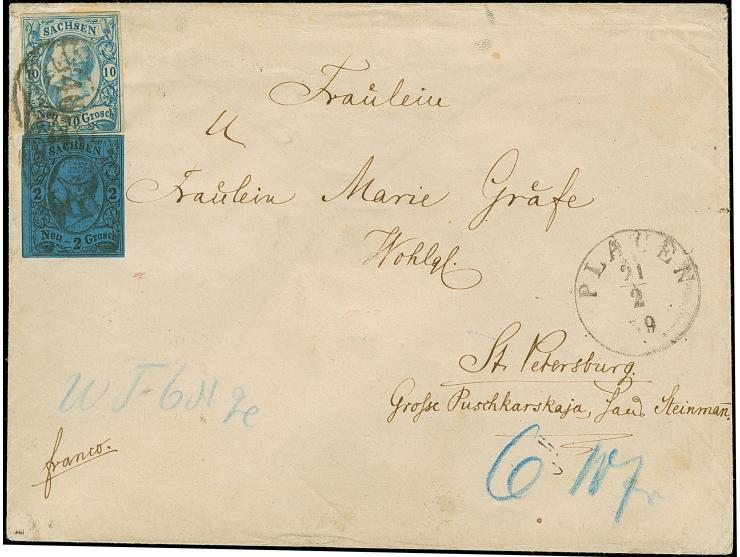 SACHSEN
10 10
Neu-10 Grosch
SACHSEN
2 2
Neu-2 Grosch
Fräulein
Fräulein Marie Gräfe
Wohlgl.
PLAUEN
21
2
9
St. Petersburg.
Grosse Puschkarskaja, Steinman.
franco.